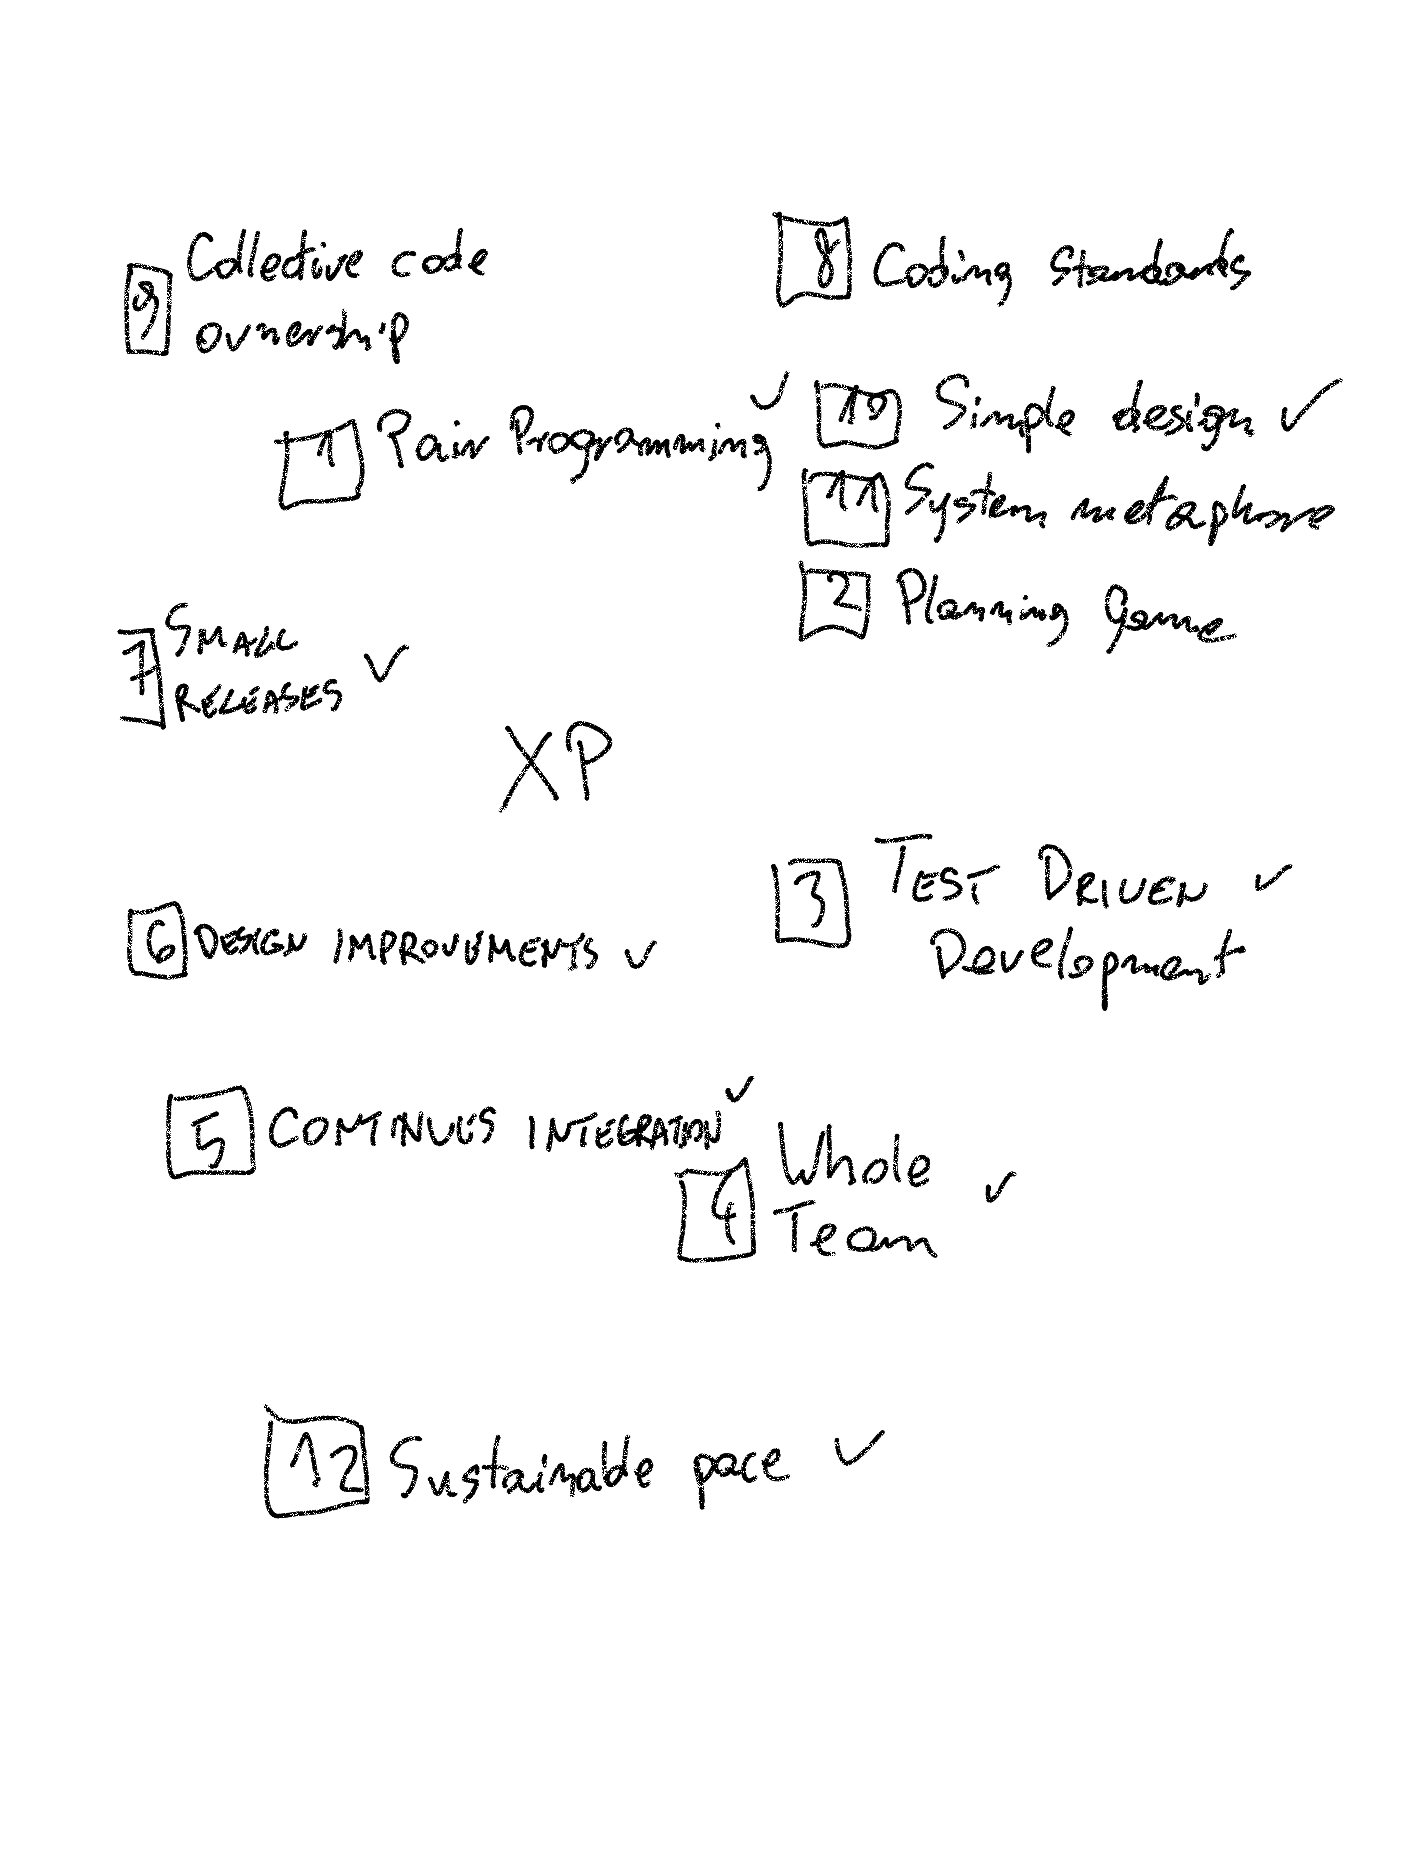 9 Collective code
ownership
8 Coding standards
1 Pair Programming ✓
10 Simple design ✓
11 System metaphore
2 Planning Game
7 SMALL
RELEASES ✓
XP
3 TEST DRIVEN ✓
Development
6 DESIGN IMPROVEMENTS ✓
5 CONTINUES INTEGRATION ✓
4 Whole
Team ✓
12 Sustainable pace ✓